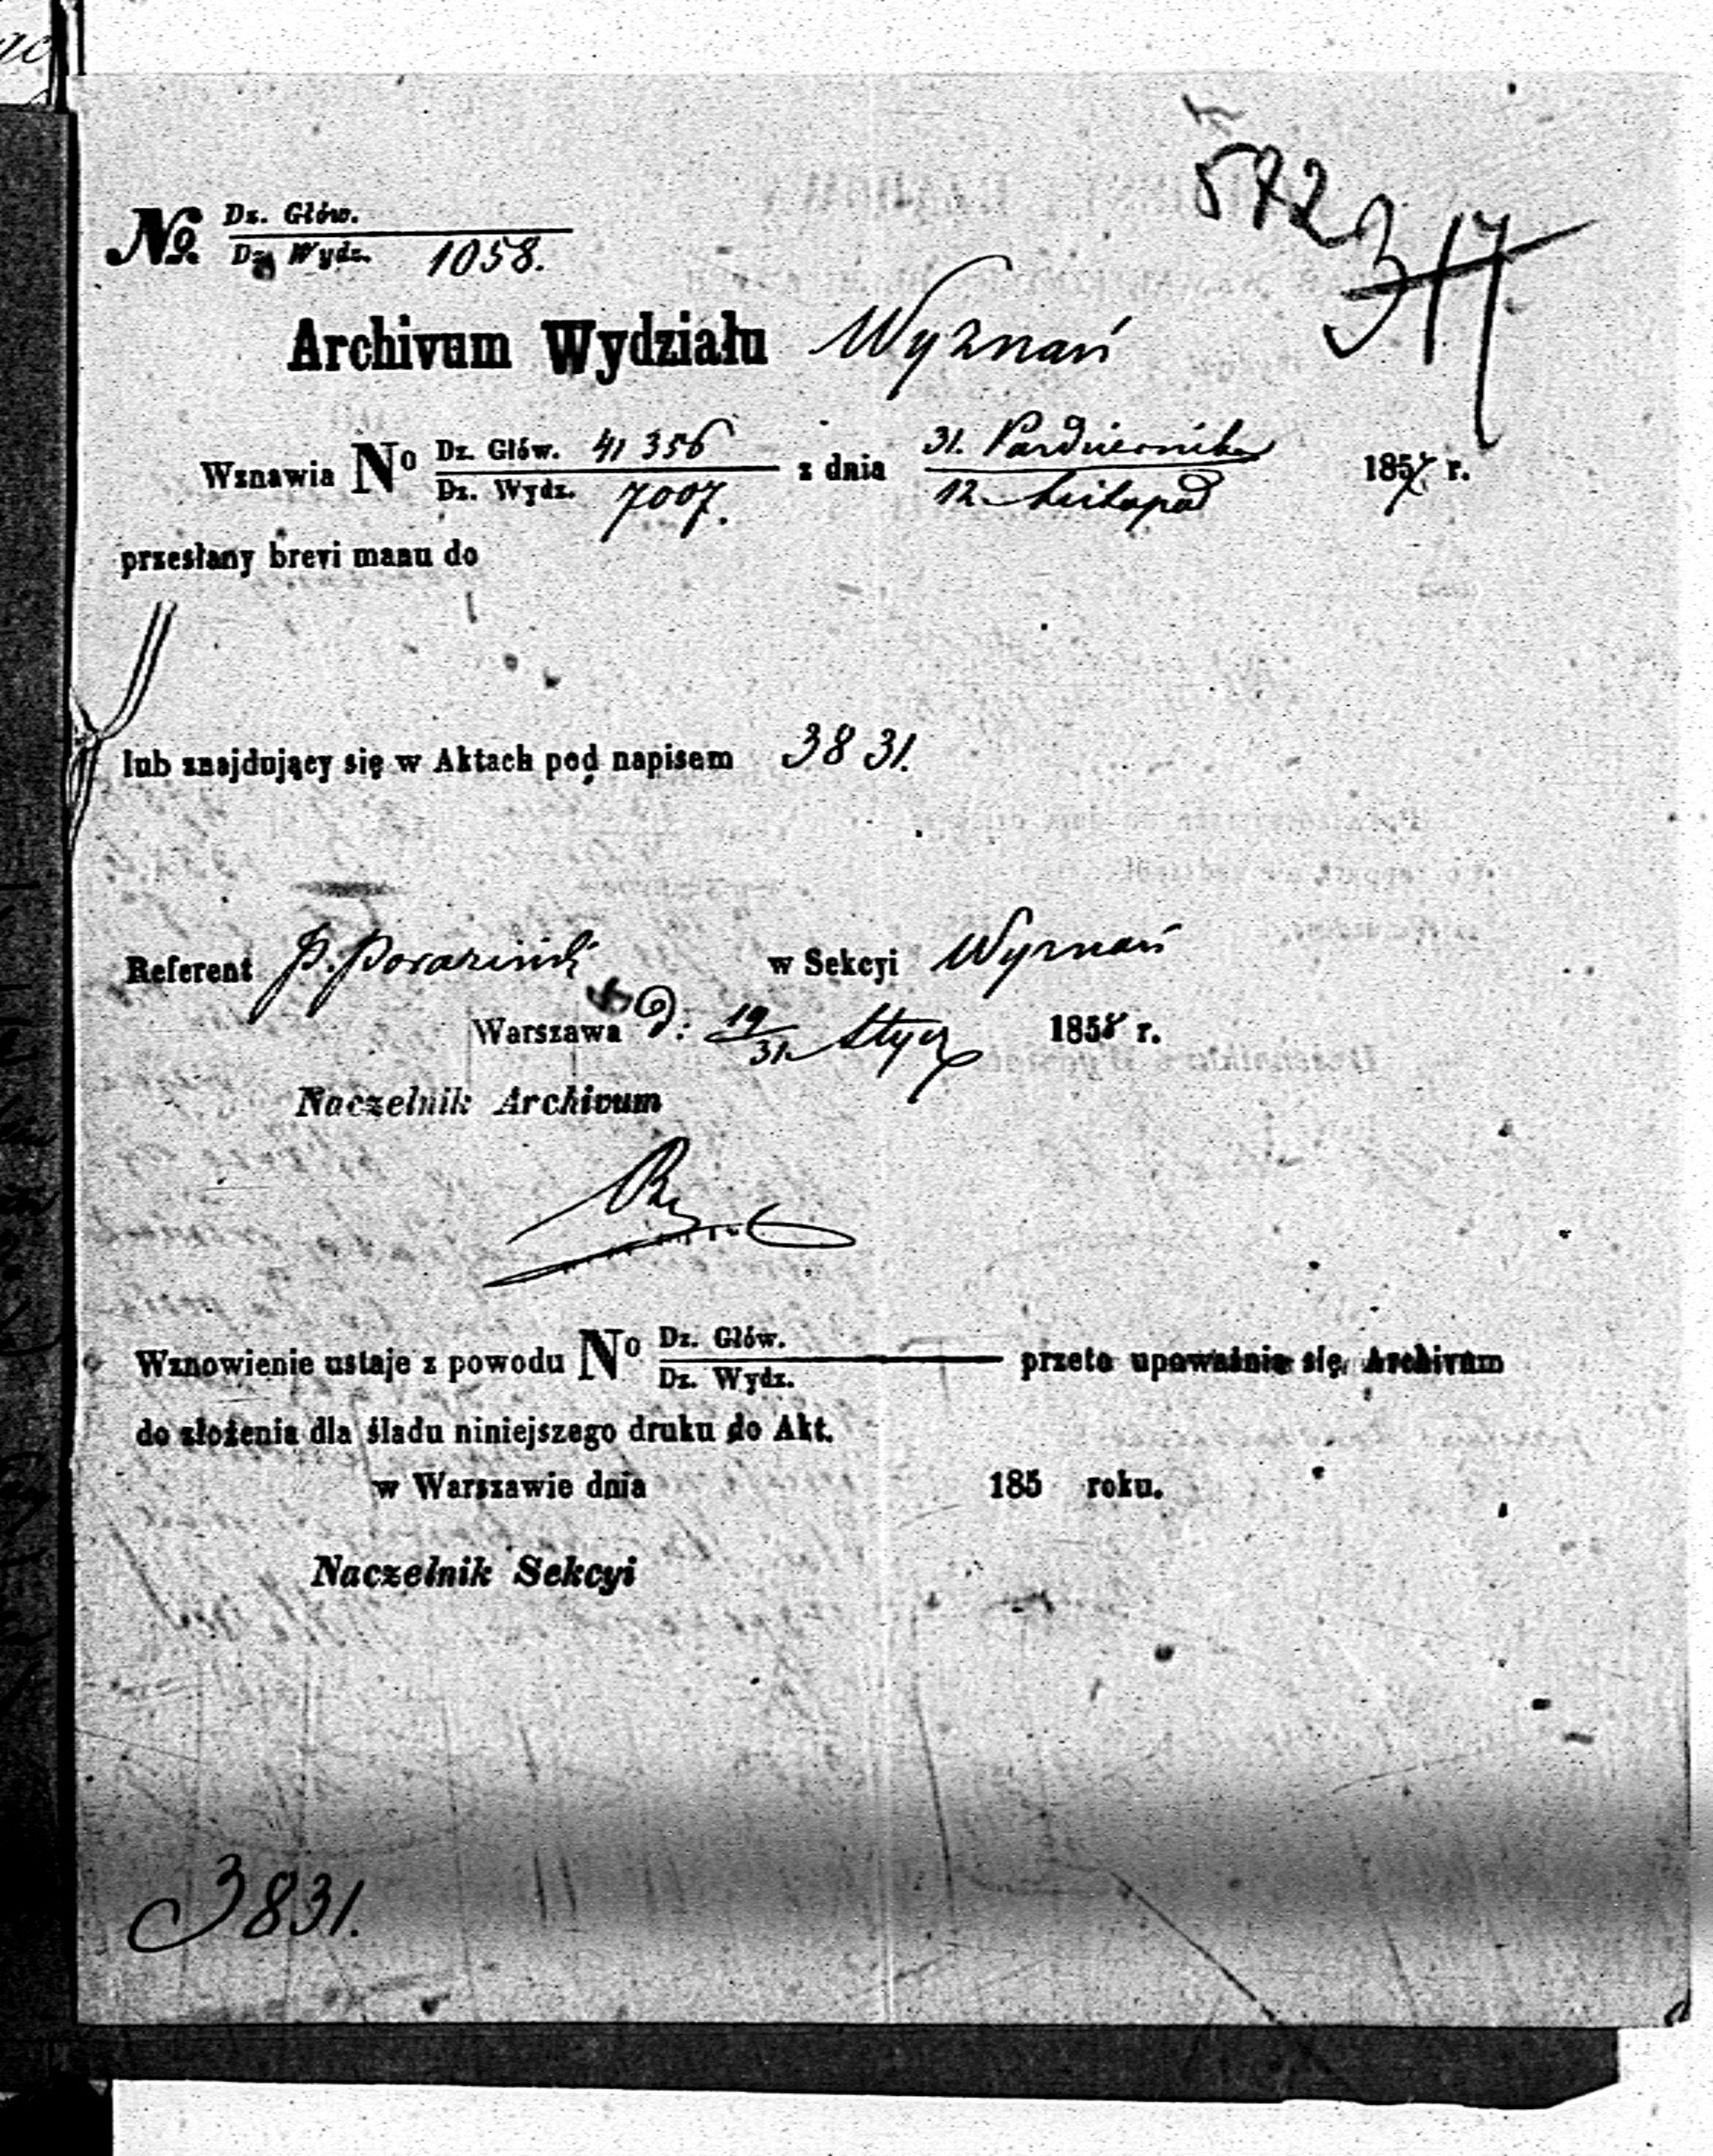 572
317
No. Dz. Głów.
Dz. Wydz. 1058.
Archivum Wydziału Wyznań
Wznawia No Dz. Głów. 41356 z dnia 31. Października 1857 r.
Dz. Wydz. 7007. 12 Listopad
przesłany brevi manu do
lub znajdujący się w Aktach pod napisem 3831.
Referent P. Poraziński w Sekcyi Wyznań
Warszawa d: 19/31 Stycz 1858 r.
Naczelnik Archivum
Wznowienie ustaje z powodu No Dz. Głów. przeto upoważnia się Archivum
Dz. Wydz.
do złożenia dla śladu niniejszego druku do Akt.
w Warszawie dnia 185 roku.
Naczelnik Sekcyi
3831.